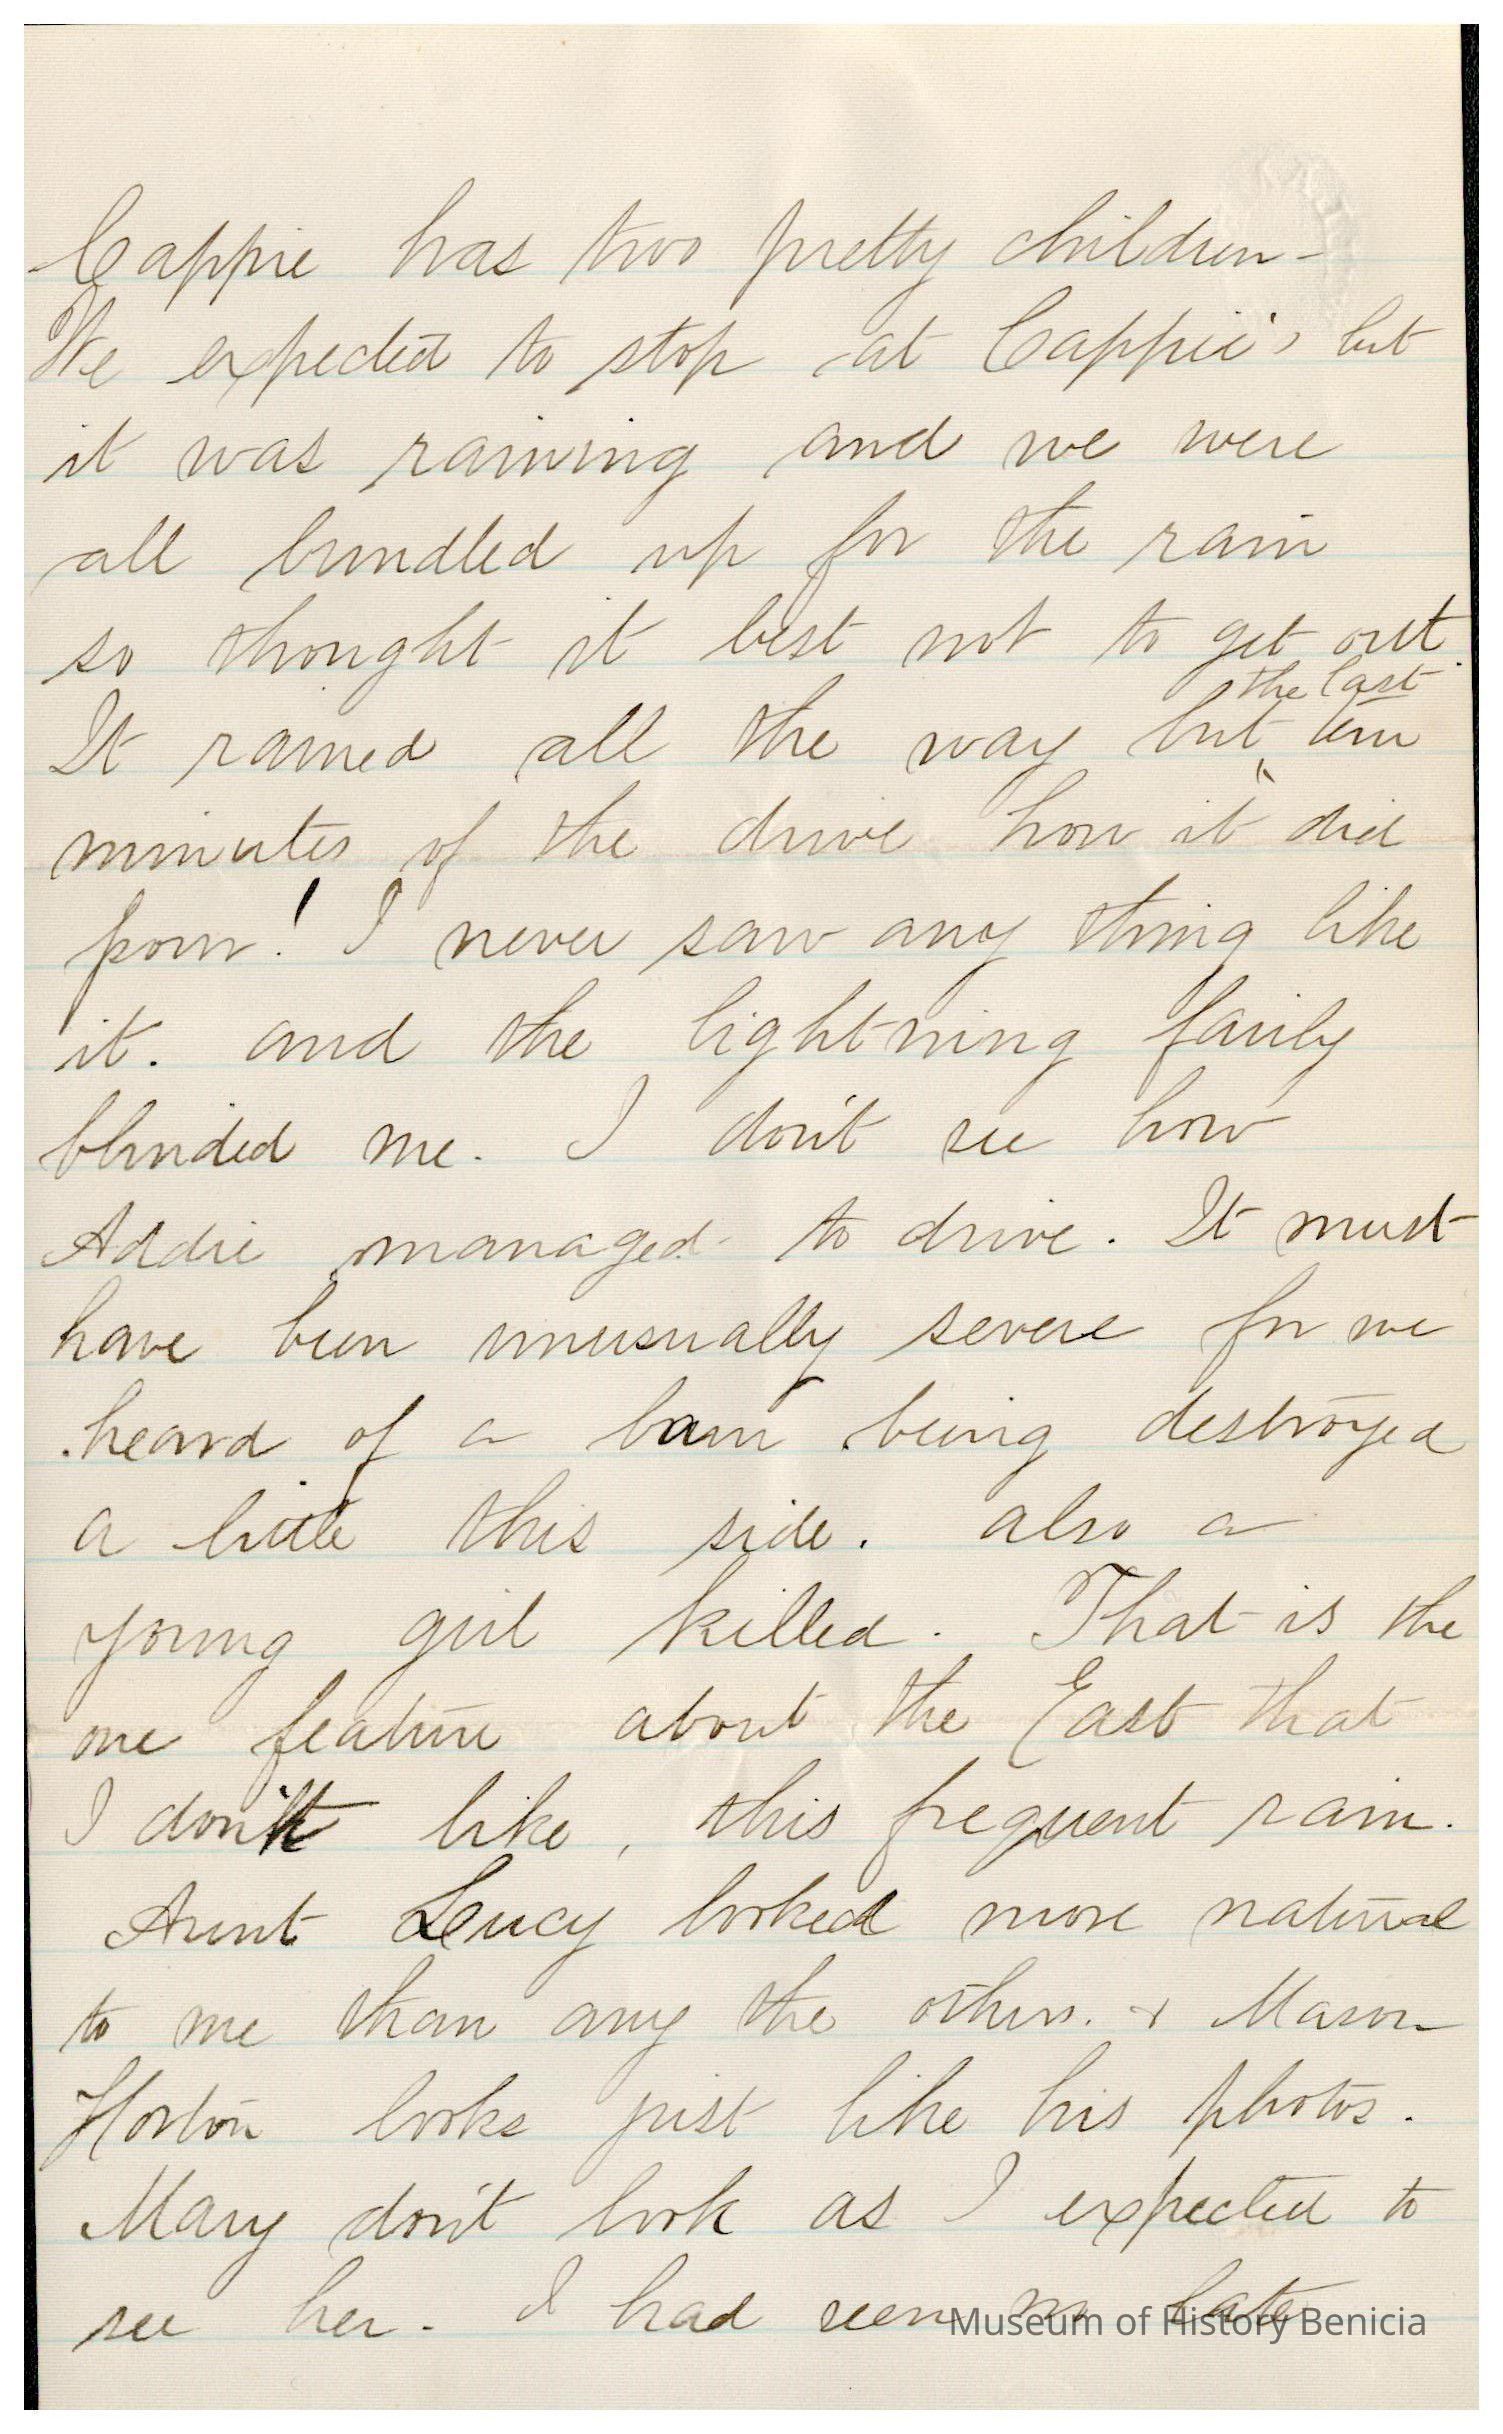 Cappie has two pretty children -
We expected to stop at Cappie's but
it was raining and we were
all bundled up for the rain
so thought it best not to get out.
the last
It rained all the way but ten
minutes of the drive how it did
pour! I never saw any thing like
it. and the lightning fairly
blinded me. I don't see how
Addie managed to drive. It must
have been unusually severe for we
heard of a barn being destroyed
a little this side. also a
young girl killed. That is the
one feature about the East that
I don't like, this frequent rain.
Aunt Lucy looked more natural
to me than any the others. & Mason
Horton looks just like his photos.
Mary don't look as I expected to
see her. I had seen no late
Museum of History Benicia